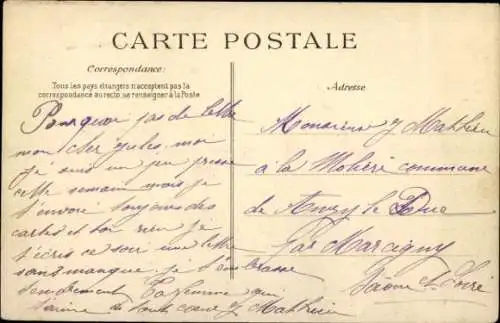 CARTE POSTALE
Correspondance:
Tous les pays étrangers n'acceptent pas la
correspondance au recto, se renseigner à la Poste
Adresse
Pourquoi pas de lettre
mon cher Jules, moi
je suis un peu pressé
cette semaine mais je
t'envoie toujours des
cartes et son rien je
t'écris ce soir une lettre
sans manque, je t'embrasse
tendrement Ta femme qui
t'aime de tout cœur J Mathieu
Monsieur J Mathieu
à la commune
de Anzy le Duc
Par Marcigny
Saône & Loire